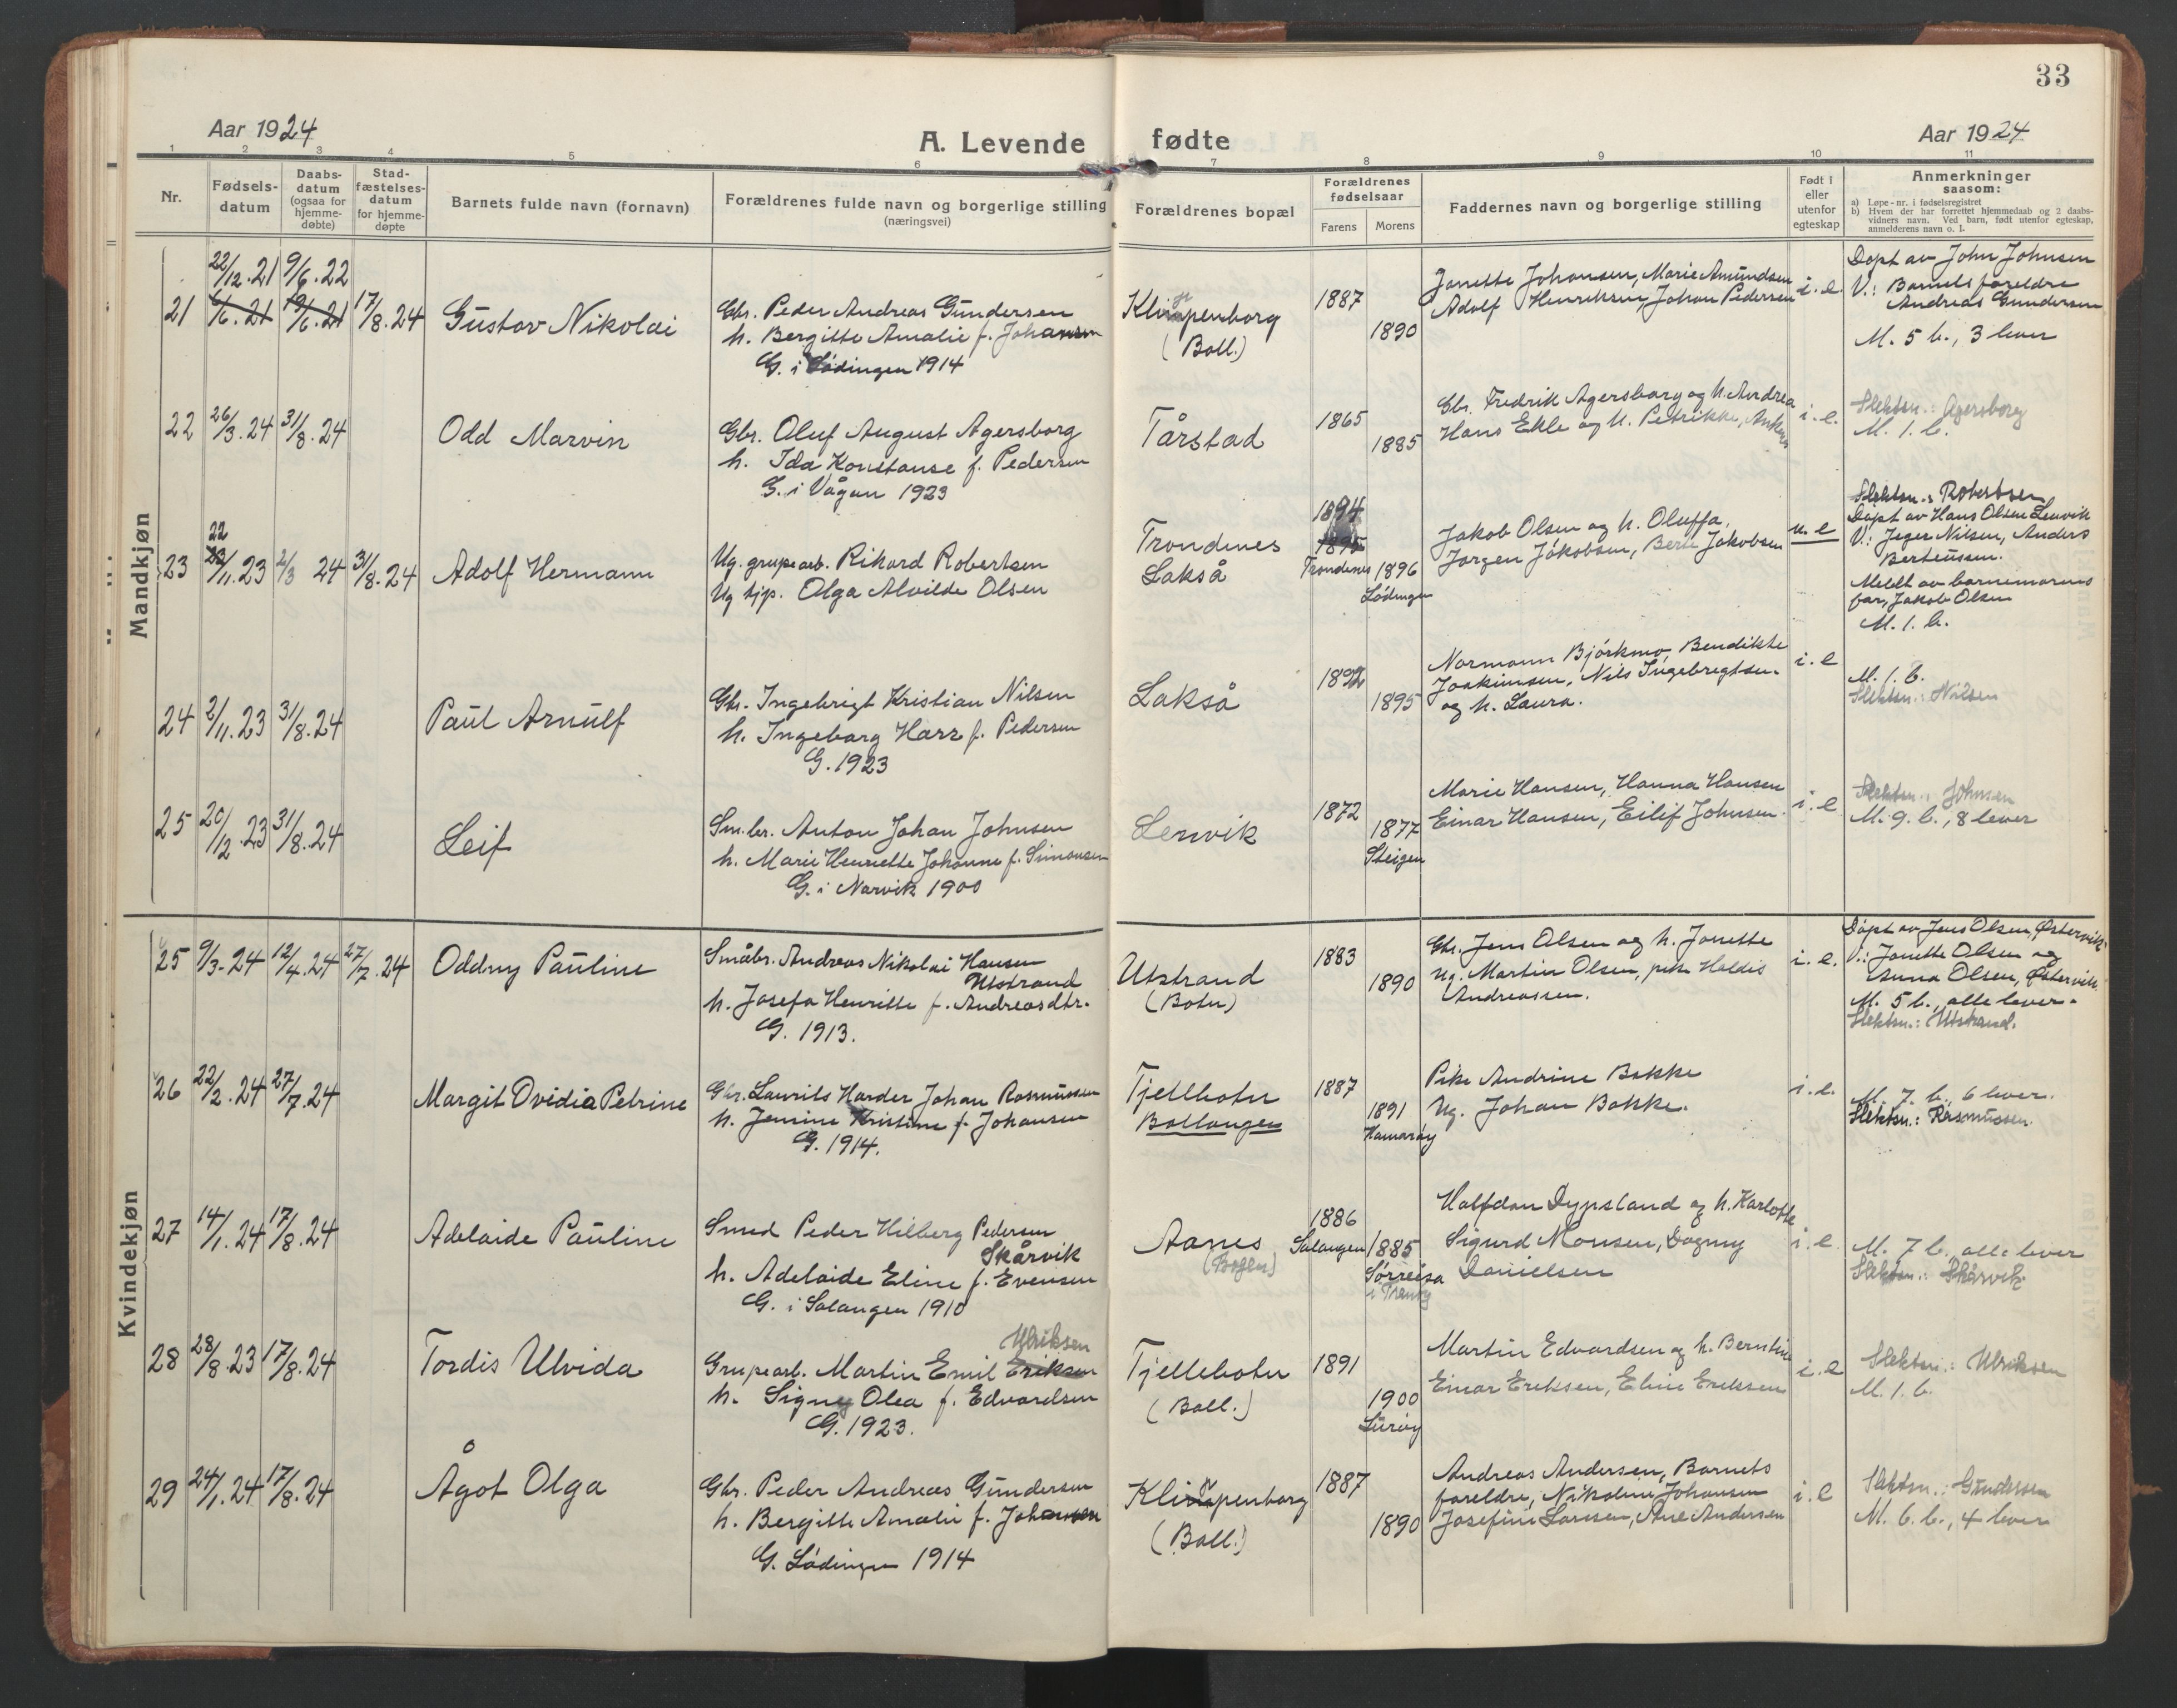 33
Aar 1924
A. Levende fødte
Aar 1924
1 2 3 4 5 6 7 8 9 10 11
Nr.
Fødsels-
datum
Daabs-
datum
(ogsaa for
hjemme-
døbte)
Stad-
fæstelses-
datum
for hjemme-
døpte
Barnets fulde navn (fornavn)
Forældrenes fulde navn og borgerlige stilling
(næringsvei)
Forældrenes bopæl
Forældrenes
fødselsaar
Farens Morens
Faddernes navn og borgerlige stilling
Født i
eller
utenfor
egteskap
Anmerkninger
saasom:
a) Løpe-nr. i fødselsregistret
b) Hvem der har forrettet hjemmedaab og 2 daabs-
vidners navn. Ved barn, født utenfor egteskap,
anmelderens navn o. l.
Mandkjøn
22/12.21 9/6.22
21 6/6.21 19/6.21 17/8.24 Gustav Nikolai
Gbr. Peder Andreas Gundersen
h. Bergitte Amalie f. Johansen
G. i Lødingen 1914
Klippenborg
(Ball.)
1887
1890
Janette Johansen, Marie Amundsen
Adolf Henriksen, Johan Pedersen
i. e.
Døpt av John Johnsen
V.: Barnets foreldre
Andreas Gundersen
M. 5 b., 3 lever
22 26/3.24 31/8.24 Odd Marvin
Gbr. Oluf August Agersborg
h. Ida Konstanse f. Pedersen
G. i Vågan 1923
Tårstad
1865
1885
Gbr. Fredrik Agersborg og h. Andrea
Hans Ekle og h. Petrikke,
i. e.
Slektsn.: Agersborg
M. 1. b.
22
23 23/11.23 2/3 24 31/8.24 Adolf Hermann
Ug. grupearb. Rikard Robertsen
Ug tjp. Olga Alvilde Olsen
Trondenes
Lakså
1894
1895
Trondenes
1896
Lødingen
Jakob Olsen og h. Oluffa,
Jørgen Jakobsen, Berit Jakobsen
u. e
Slektsn.: Robertsen
Døpt av Hans Olsen Lenvik
V.: Jeger Nilsen, Anders
Berteussen.
Meldt av barnemorens
far, Jakob Olsen
M. 1. b.
24 2/11.23 31/8.24 Paul Arnulf
Gbr. Ingebrigt Kristian Nilsen
h. Ingeborg Harr f. Pedersen
G. 1923
Lakså
1892
1895
Normann Bjørkmo, Bendikte
Joakimsen, Nils Ingebregtsen
og h. Laura.
i. e
M. 1. b.
Slektsn.: Nilsen
25 20/12.23 31/8.24 Leif
Sm.br. Anton Johan Johnsen
h. Marie Henriette Johanne f. Simonsen
G. i Narvik 1900
Lenvik
1872
1877
Steigen
Marie Hansen, Hanna Hansen
Einar Hansen, Eilif Johnsen.
i. e
Slektsn.: Johnsen
M. 9. b., 8 lever
Kvindekjøn
25 9/3.24 12/4.24 27/7.24 Oddny Pauline
Småbr. Andreas Nikolai Hansen
Utstrand
h. Josefa Henritte f. Andreasdtr.
G. 1913.
Utstrand
(Botn)
1883
1890
Gbr. Jens Olsen og h. Janette
Ug. Martin Olsen, pike Haldis
Andreassen.
i. e.
Døpt av Jens Olsen, Østervik
V.: Janette Olsen og
Anna Olsen, Østervik.
M. 5 b., alle lever.
Slektsn.: Utstrand.
26 22/2.24 27/7.24 Margit Ovidia Petrine
Gbr. Laurits Harder Johan Rasmussen
h. Jensine Kristine f. Johansen
G. 1914.
Tjellbotn
Ballangen
1887
1891
Hamarøy
Pike Andrine Bakke
Ug. Johan Bakke.
i. e.
M. 7. b., 6 lever.
Slektsn.: Rasmussen.
27 14/1.24 17/8.24 Adelaide Pauline
Smed Peder Hilberg Pedersen
Skårvik
h. Adelaide Eline f. Evensen
G. i Salangen 1910
Aanes
(Bogen)
1886
Salangen
1885
Sørreisa
i Troms
Halfdan Dypsland og h. Karlotte
Sigurd Monsen, Dagny
Danielsen
i. e.
M. 7 b., alle lever
Slektsn.: Skårvik
28 28/8.23 17/8.24 Tordis Ulvida
Ulriksen
Grupearb. Martin Emil Eriksen
h. Signy Olea f. Edvardsen
G. 1923.
Tjellebotn
(Ball.)
1891
1900
Lurøy
Martin Edvardsen og h. Berntine
Einar Eriksen, Eline Eriksen
i. e
Slektsn.: Ulriksen
M. 1. b.
29 24/1.24 17/8.24 Ågot Olga
Gbr. Peder Andreas Gundersen
h. Bergitte Amalie f. Johansen
G. Lødingen 1914
Klippenborg
(Ball.)
1887
1890
Andreas Andersen, Barnets
foreldre, Nikoline Johansen
Josefine Larsen, Ane Andersen
i. e
Slektsn.: Gundersen
M. 6. b., 4 lever